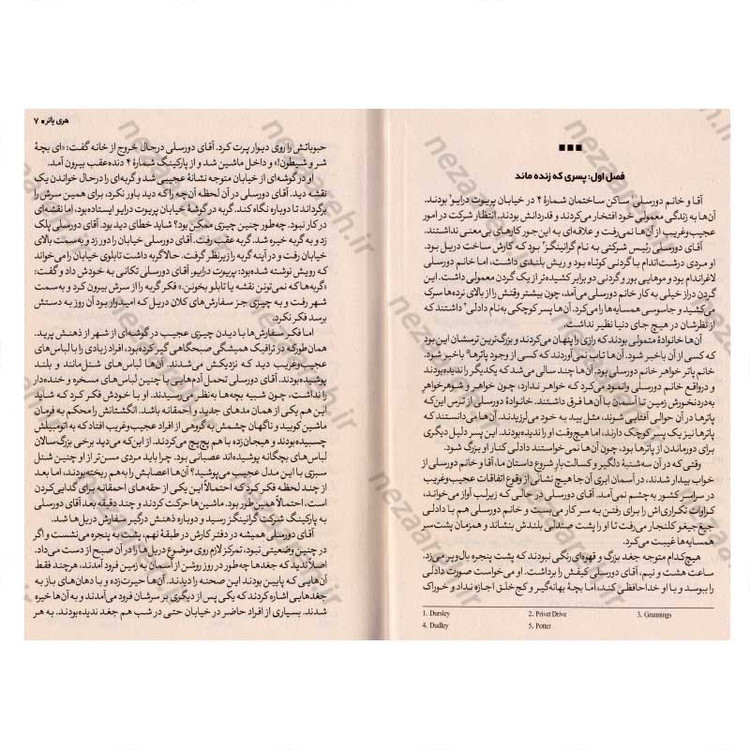 فصل اول: پسری که زنده ماند
آقا و خانم دورسلی¹ ساکن ساختمان شمارهٔ ۴ در خیابان پریوت درایو² بودند.
آن‌ها به زندگی معمولی خود افتخار می‌کردند و قدردانش بودند. انتظار شرکت در امور
عجیب‌وغریب از آن‌ها نمی‌رفت و علاقه‌ای به این‌جور کارهای بی‌معنی نداشتند.
آقای دورسلی رئیس شرکتی به نام گرانینگز³ بود که کارش ساخت دریل بود.
او مردی درشت‌اندام با گردنی کوتاه بود و ریش بلندی داشت، اما خانم دورسلی
لاغراندام بود و موهایی بور و گردنی دو برابر کشیده‌تر از یک گردن معمولی داشت. این
گردن دراز خیلی به کار خانم دورسلی می‌آمد، چون بیشتر وقتش را از بالای نرده‌ها سرک
می‌کشید و جاسوسی همسایه‌ها را می‌کرد. آن‌ها پسر کوچکی به‌نام دادلی⁴ داشتند که
از نظرشان در هیچ جای دنیا نظیر نداشت.
آن‌ها خانوادهٔ متمولی بودند که رازی را پنهان می‌کردند و بزرگ‌ترین ترسشان این بود
که کسی از آن باخبر شود. آن‌ها تاب نمی‌آوردند که کسی از وجود پاترها⁵ باخبر شود.
خانم پاتر خواهر خانم دورسلی بود. آن‌ها چند سالی می‌شد که یکدیگر را ندیده‌بودند
و درواقع خانم دورسلی وانمود می‌کرد که خواهر ندارد، چون خواهر و شوهرخواهرِ
به‌دردنخورش زمین تا آسمان با آن‌ها فرق داشتند. خانوادهٔ دورسلی از ترس این‌که
پاترها در آن حوالی آفتابی شوند، مثل بید به خود می‌لرزیدند. آن‌ها می‌دانستند که
پاترها نیز یک پسر کوچک دارند، اما هیچ‌وقت او را ندیده‌بودند. این پسر دلیل دیگری
برای دورماندن از پاترها بود، چون آن‌ها نمی‌خواستند دادلی کنار او بزرگ شود.
وقتی که در آن سه‌شنبهٔ دلگیر و کسالت‌بارِ شروع داستان ما، آقا و خانم دورسلی از
خواب بیدار شدند، در آسمان ابری آن‌جا هیچ نشانی از وقوع اتفاقات عجیب‌وغریب
در سراسر کشور به‌چشم نمی‌آمد. آقای دورسلی در حالی که زیرلب آواز می‌خواند،
کراوات تکراری‌اش را برای رفتن به سر کار می‌بست و خانم دورسلی هم با دادلی
جیغ‌جیغو کلنجار می‌رفت تا او را پشت صندلی بلندش بنشاند و همزمان پشت‌سر
همسایه‌ها غیبت می‌کرد.
هیچ‌کدام متوجه جغد بزرگ و قهوه‌ای‌رنگی نبودند که پشت پنجره بال‌وپر می‌زد.
ساعت هشت و نیم، آقای دورسلی کیفش را برداشت. او می‌خواست صورت دادلی
را ببوسد و با او خداحافظی کند، اما بچهٔ بهانه‌گیر و کج‌خلق اجازه نداد و خوراک
1. Dursley 2. Privet Drive 3. Grunnings
4. Dudley 5. Potter
هری پاتر ■ ۷
حبوباتش را روی دیوار پرت کرد. آقای دورسلی درحال خروج از خانه گفت: «ای بچهٔ
شر و شیطون!» و داخل ماشین شد و از پارکینگ شمارهٔ ۴ دنده‌عقب بیرون آمد.
او در گوشه‌ای از خیابان متوجه نشانهٔ عجیبی شد و گربه‌ای را درحال خواندن یک
نقشه دید. آقای دورسلی در آن لحظه آن‌چه را که دید باور نکرد، برای همین سرش را
برگرداند تا دوباره نگاه کند. گربه در گوشهٔ خیابان پریوت درایو ایستاده‌بود، اما نقشه‌ای
در کار نبود. چه‌طور چنین چیزی ممکن بود؟ شاید خطای دید بود. آقای دورسلی پلک
زد و به گربه خیره شد. گربه عقب رفت. آقای دورسلی خیابان را دور زد و به سمت بالای
خیابان رفت و در آینه گربه را زیرنظر گرفت. حالا گربه داشت تابلوی خیابان را می‌خواند
که رویش نوشته شده‌بود: پریوت درایو. آقای دورسلی تکانی به خودش داد و گفت:
«گربه‌ها که نمی‌تونن نقشه یا تابلو بخونن.» فکر گربه را از سرش بیرون کرد و به‌سمت
شهر رفت و به چیزی جز سفارش‌های کلان دریل که امیدوار بود آن روز به دستش
برسد فکر نکرد.
اما فکر سفارش‌ها با دیدن چیزی عجیب در گوشه‌ای از شهر از ذهنش پرید.
همان‌طور که در ترافیک همیشگی صبحگاهی گیر کرده‌بود، افراد زیادی را با لباس‌های
عجیب‌وغریب دید که نزدیکش می‌شدند. آن‌ها لباس‌های شنل‌مانند و بلند
پوشیده‌بودند. آقای دورسلی تحمل آدم‌هایی با چنین لباس‌های مسخره و خنده‌دار
را نداشت، چون شبیه بچه‌ها به‌نظر می‌رسیدند. او با خودش فکر کرد که شاید
این هم یکی از همان مدهای جدید و احمقانه باشد. انگشتانش را محکم به فرمان
ماشین کوبید و ناگهان چشمش به گروهی از افراد عجیب‌وغریب افتاد که به اتومبیلش
چسبیده‌بودند و هیجان‌زده با هم پچ‌پچ می‌کردند. از این‌که می‌دید برخی بزرگ‌سالان
لباس‌های بچگانه پوشیده‌اند عصبانی بود. چرا باید مردی مسن‌تر از او چنین شنل
سبزی با این مدل عجیب می‌پوشید؟ آن‌ها اعصابش را به‌هم ریخته‌بودند، اما بعد
از چند لحظه فکر کرد که احتمالاً این یکی از حقه‌های احمقانه برای گدایی‌کردن
است، احتمالاً همین طور بود. ماشین‌ها حرکت کردند و چند دقیقه بعد آقای دورسلی
به پارکینگ شرکت گرانینگز رسید و دوباره ذهنش درگیر سفارش دریل‌ها شد.
آقای دورسلی همیشه در دفتر کارش در طبقهٔ نهم، پشت به پنجره می‌نشست و اگر
در چنین وضعیتی نبود، تمرکز لازم روی موضوع دریل‌ها را در آن صبح از دست می‌داد.
اصلاً ندید که جغدها چه‌طور در روز روشن از آسمان به زمین فرود آمدند، هرچند فقط
آن‌هایی که پایین بودند این صحنه را دیدند. آن‌ها حیرت‌زده و با دهان‌های باز به
جغدهایی اشاره کردند که یکی پس از دیگری بر سرشان فرود می‌آمدند و به آن‌ها خیره
شدند. بسیاری از افراد حاضر در خیابان حتی در شب هم جغد ندیده‌بودند. به هر
nezaareh.ir